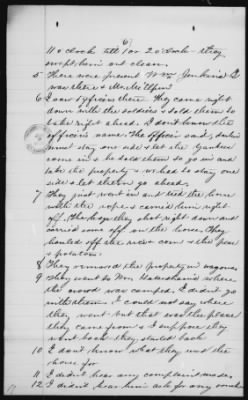 6
11 o'clock till 1 or 2 o'clock - they
swept him out clean.
5 There were present Wm Jenkins &
was there & Mr.
6 I saw 1 officer there. They came right
down with the soldiers & told them to
take right ahead. I don't know the
officer's name. The officer said,
must stay one side & let the Yankees
come in & he told them to go in and
take the property & we had to stay one
side & let them go ahead.
7 They just went in and tied the horse
with the rope & carried him right
off. The hogs they shot right down and
carried some off on the horse. They
hauled off the corn & the peas
& potatoes.
8 They removed the property in wagons
9 They went to Wm, where
the crowd was camped. I didn't go
with them. I could not say where
they went but that was the place
they came from & I suppose they
went back they started back
10 I don't know what they used the
horse for
11 I didn't hear any complaint made.
12 I didn't hear him ask for any